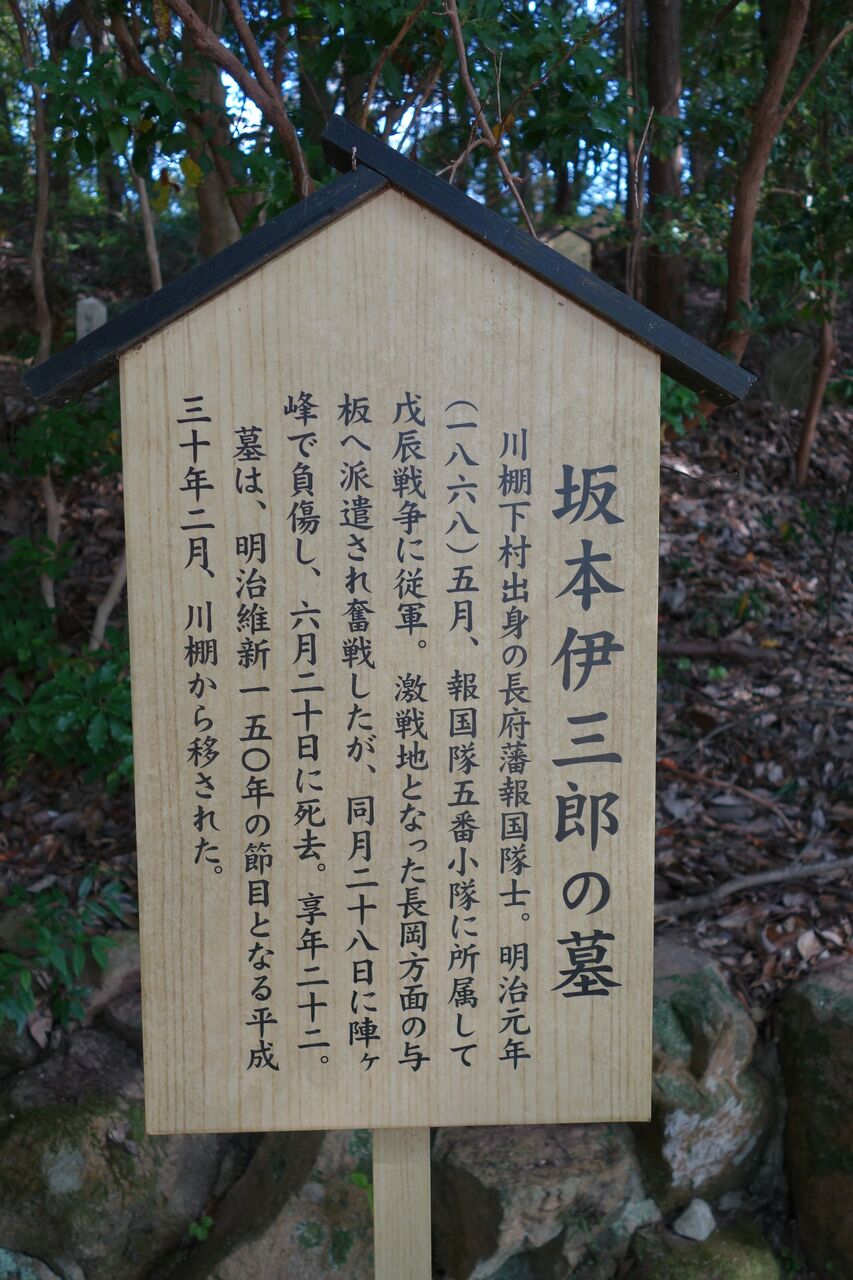 坂本伊三郎の墓
川棚下村出身の長府藩報国隊士。明治元年
(一八六八)五月、報国隊五番小隊に所属して
戊辰戦争に従軍。激戦地となった長岡方面の与
板へ派遣され奮戦したが、同月二十八日に陣ヶ
峰で負傷し、六月二十日に死去。享年二十二。
墓は、明治維新一五〇年の節目となる平成
三十年二月、川棚から移された。